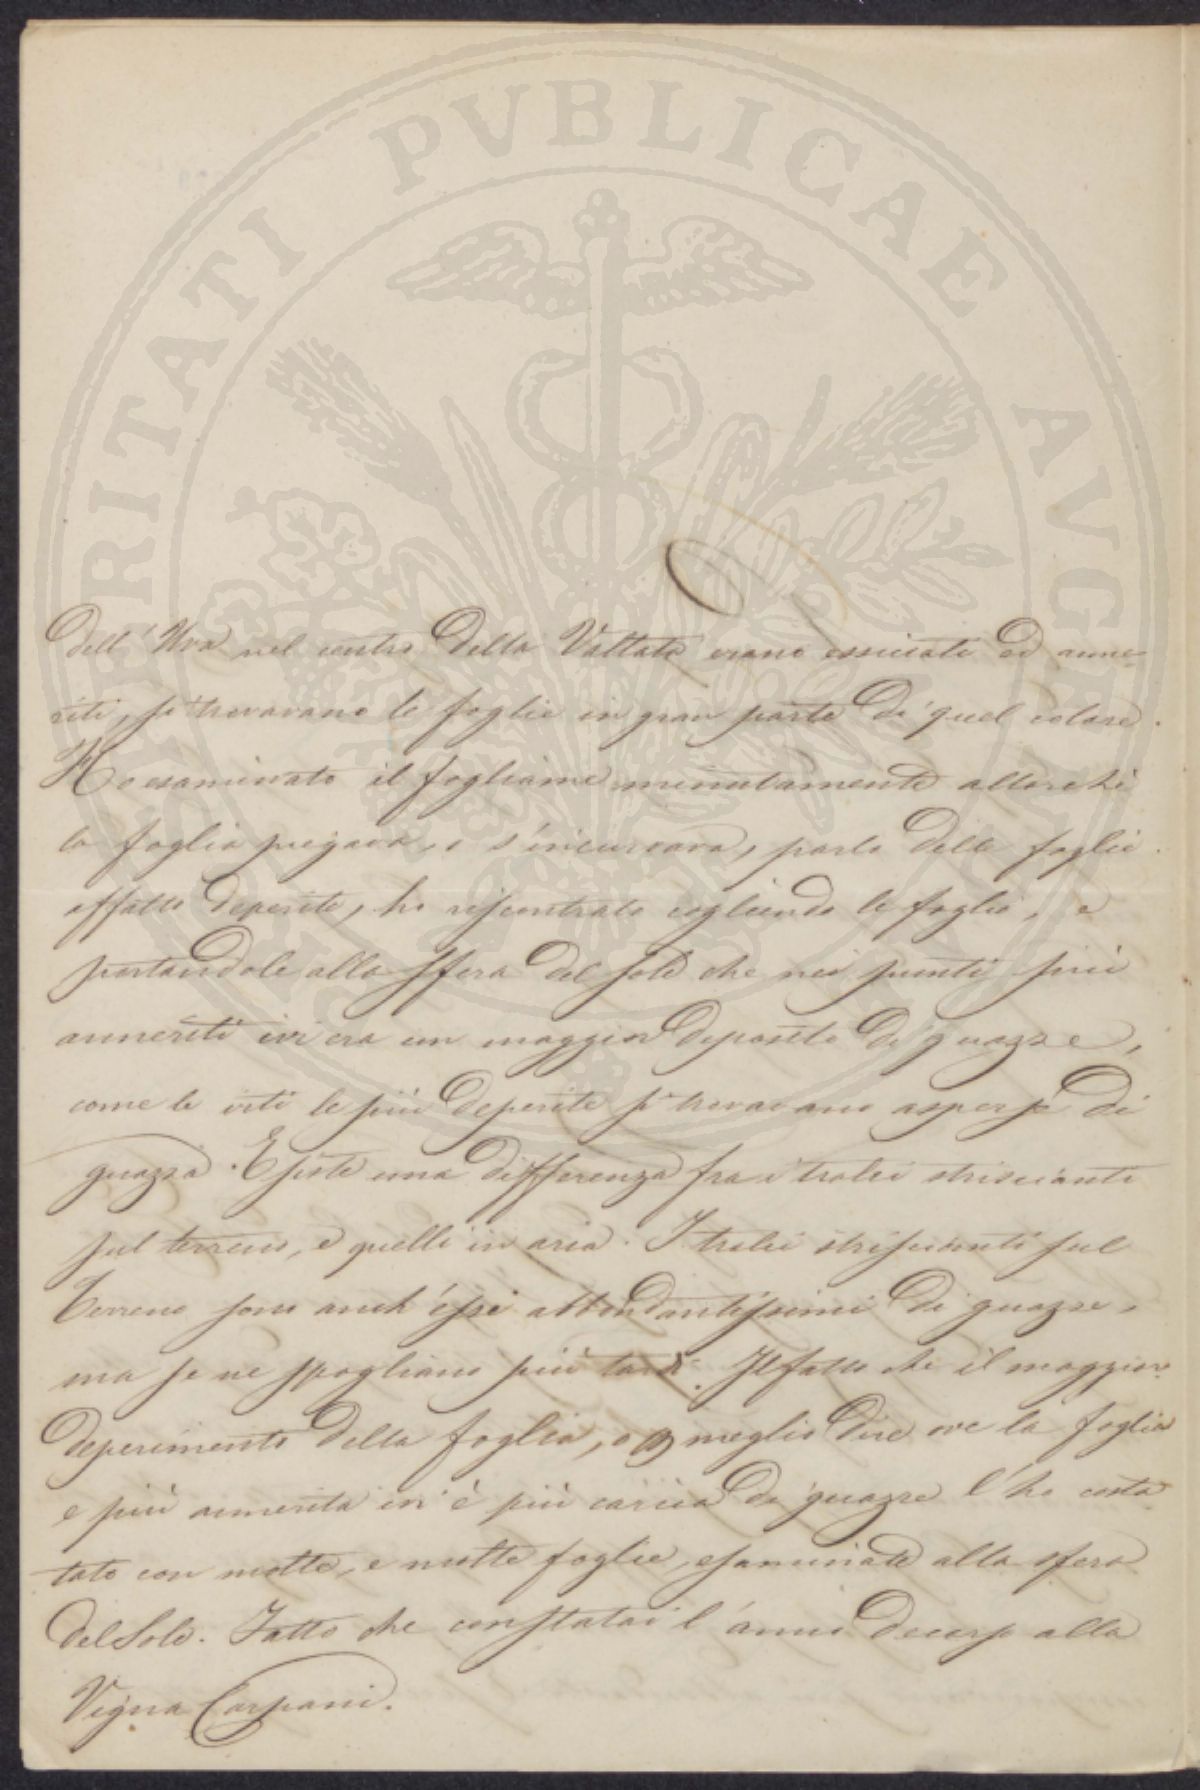 PROSPERITATI PVBLICAE AVGENDAE
dell'Uva nel centro della Vallata erano essicate ed anne-
riti, si trovavano le foglie in gran parte di quel colore.
Ho esaminato il fogliame minutamente allorchè
la foglia piegava, e s'incurvava, parlo delle foglie
affatto deperite, ho riscontrato cogliendo le foglie, e
portandole alla sfera del sole che nei punti più
anneriti ivi era un maggior deposito di guazze,
come le viti le più deperite si trovavano asperse di
guazza. Esiste una differenza fra i tralci striscianti
sul terreno, e quelli in aria. I tralci striscianti sul
Terreno sono anch'essi abbondantissimi di guazze,
ma se ne spogliano più tardi. Il fatto che il maggior
deperimento della foglia, o meglio dire ove la foglia
e più annerita ivi è più carica di guazze l'ho costa-
tato con molte, e molte foglie, esaminate alla sfera
del Sole. Fatto che constatai l'anno decorso alla
Vigna Carpani.